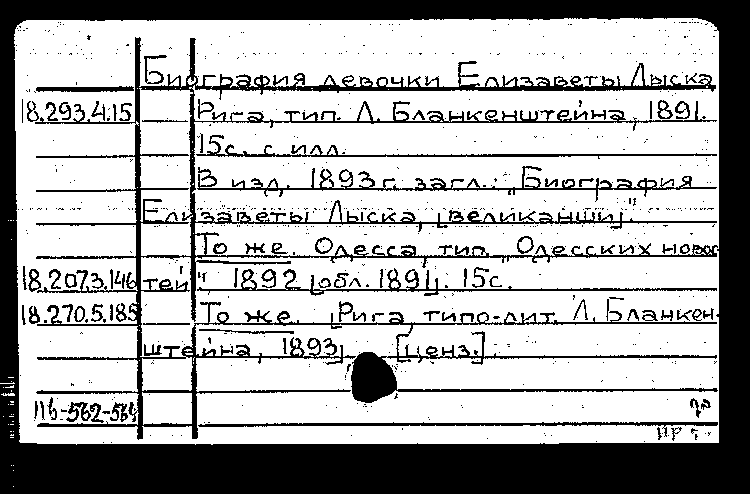 Биография девочки Елизаветы Лыска
18.293.4.15 Рига, тип. Л. Бланкенштейна, 1891.
15с. с илл.
В изд. 1893 г. загл.: „Биография
Елизаветы Лыска, [великанши]".
То же. Одесса, тип. „Одесских новос-
18.207.3.146 тей", 1892 [обл. 1891]. 15с.
18.270.5.185 То же. [Рига, типо-лит. Л. Бланкен-
штейна, 1893]. [ценз.].
116-562-564